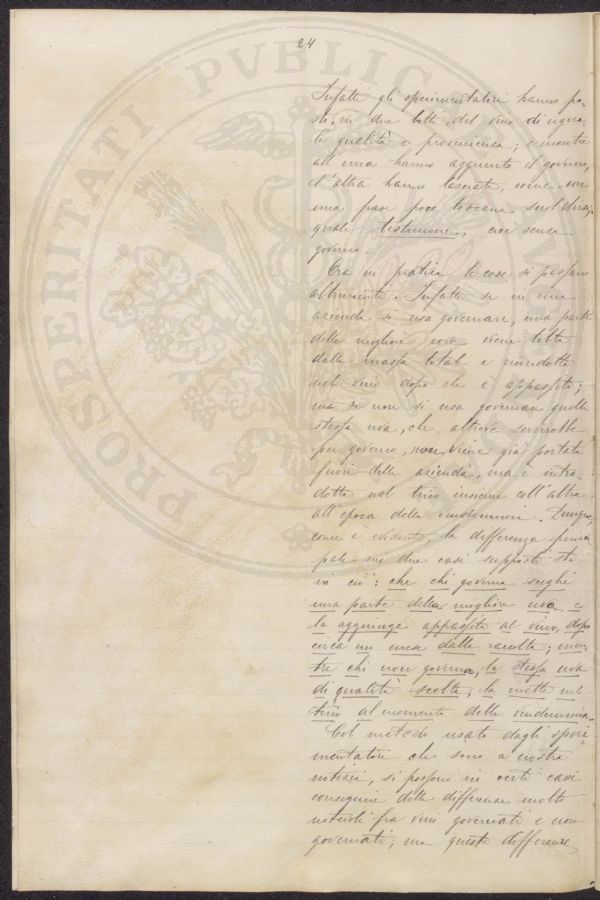 24
PROSPERITATI PVBLIC
Infatti gli sperimentatori hanno po-
sto, in due botti, del vino di egua-
le qualità e provenienza; e mentre
all'una hanno aggiunto il governo,
l'altra hanno lasciata, come con
una frase poco toscana suol dirsi,
quale testimone, cioè senza
governo.
Ora in pratica le cose si passano
altrimenti. Infatti se in una
azienda si usa governare, una parte
delle migliori uve viene tolta
dalla massa totale e ricondotta
nel vino dopo che è appassita;
ma se non si usa governare quella
stessa uva, che altrove servirebbe
per governo, non viene già portata
fuori della azienda, ma è intro-
dotta nel tino insieme coll'altra
all'epoca della vendemmia. Dunque,
come è evidente, la differenza princi-
pale nei due casi supposti sta
in ciò: che chi governa sceglie
una parte della migliore uva, e
la aggiunge appassita al vino, dopo
circa un mese dalla raccolta; men-
tre chi non governa, la stessa uva
di qualità scelta, la mette nel
tino al momento della vendemmia.
Col metodo usato dagli speri-
mentatori che sono a nostra
notizia, si possono in certi casi
conseguire delle differenze molto
notevoli fra vini governati e non
governati; ma queste differenze